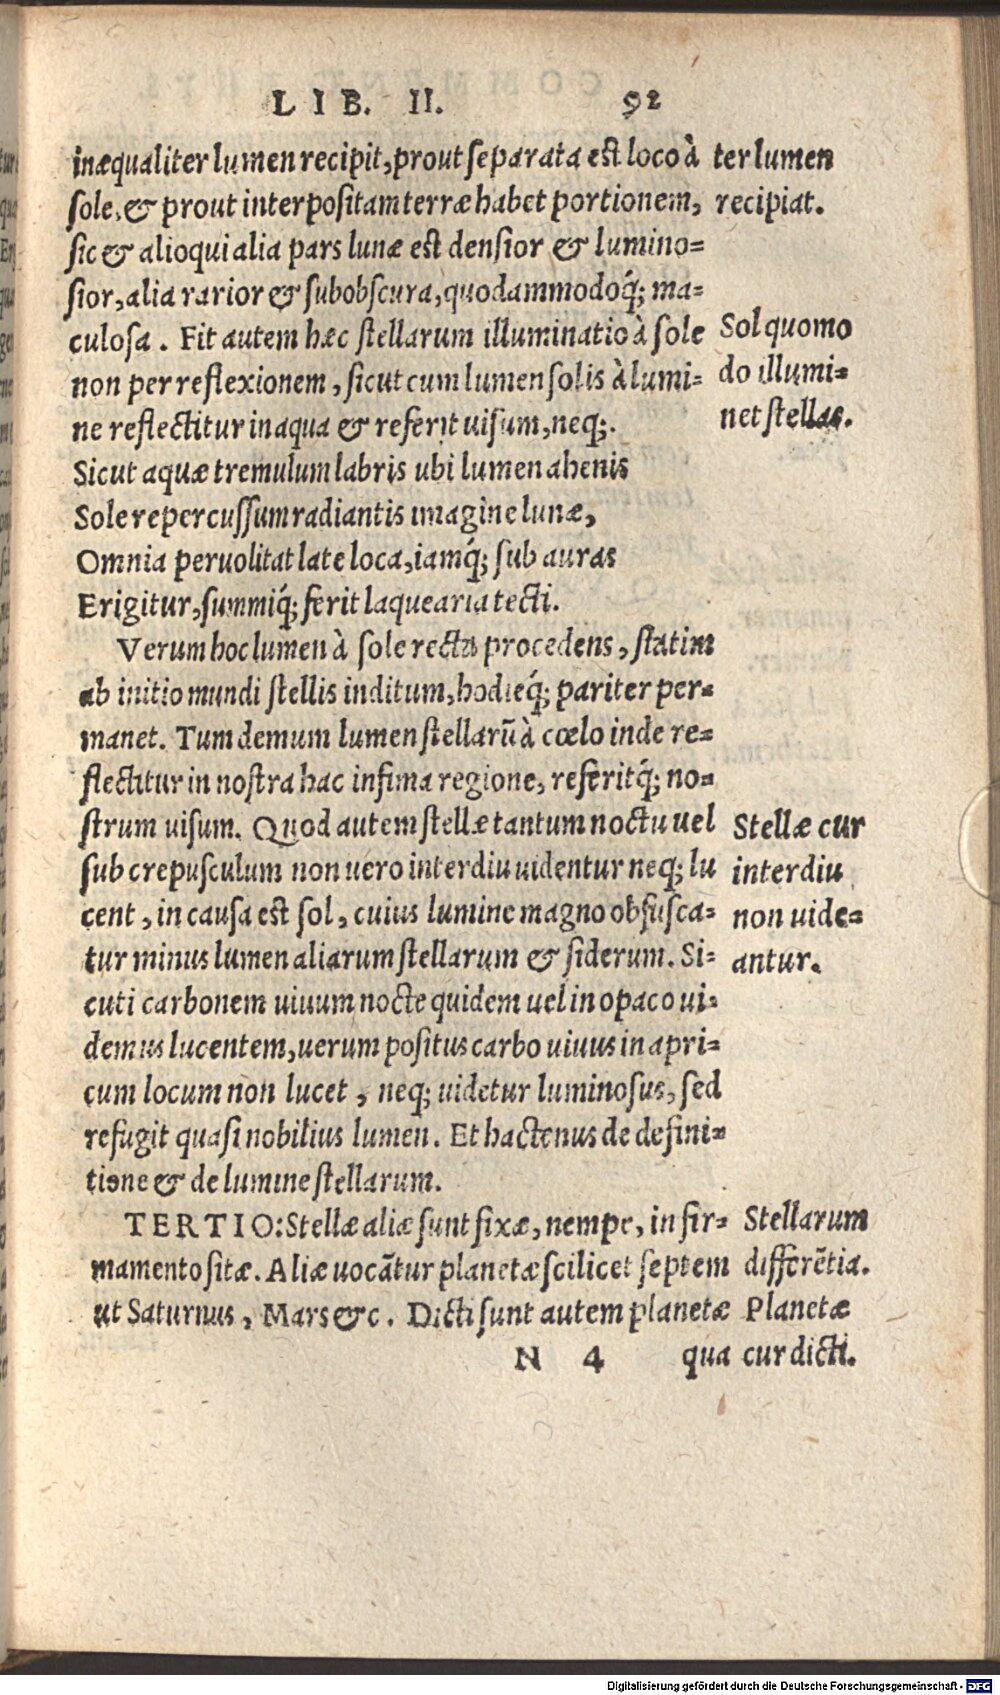 LIB. II. 92
inæqualiter lumen recipit, prout separata est loco à
sole, & prout interpositam terræ habet portionem,
sic & alioqui alia pars lunæ est densior & lumino=
sior, alia rarior & subobscura, quodammodoq́; ma=
culosa. Fit autem hæc stellarum illuminatio à sole
non per reflexionem, sicut cum lumen solis à lumi=
ne reflectitur in aqua & referit uisum, neq;.
Sicut aquæ tremulum labris ubi lumen ahenis
Sole repercussum radiantis imagine lunæ,
Omnia peruolitat late loca, iamq́; sub auras
Erigitur, summiq́; ferit laquearia tecti.
Verum hoc lumen à sole recta procedens, statim
ab initio mundi stellis inditum, hodieq́; pariter per=
manet. Tum demum lumen stellarũ à cœlo inde re=
flectitur in nostra hac infima regione, referitq́; no=
strum uisum. Quod autem stellæ tantum noctu uel
sub crepusculum non uero interdiu uidentur neq; lu
cent, in causa est sol, cuius lumine magno obfusca=
tur minus lumen aliarum stellarum & siderum. Si=
cuti carbonem uiuum nocte quidem uel in opaco ui=
demus lucentem, uerum positus carbo uiuus in apri=
cum locum non lucet, neq; uidetur luminosus, sed
refugit quasi nobilius lumen. Et hactenus de defini=
tione & de lumine stellarum.
TERTIO: Stellæ aliæ sunt fixæ, nempe, in fir=
mamento sitæ. Aliæ uocãtur planetæ scilicet septem
ut Saturnus, Mars &c. Dicti sunt autem planetæ
N 4 qua
ter lumen
recipiat.
Sol quomo
do illumi=
net stellas.
Stellæ cur
interdiu
non uide=
antur.
Stellarum
differẽtia.
Planetæ
cur dicti.
Digitalisierung gefördert durch die Deutsche Forschungsgemeinschaft - DFG